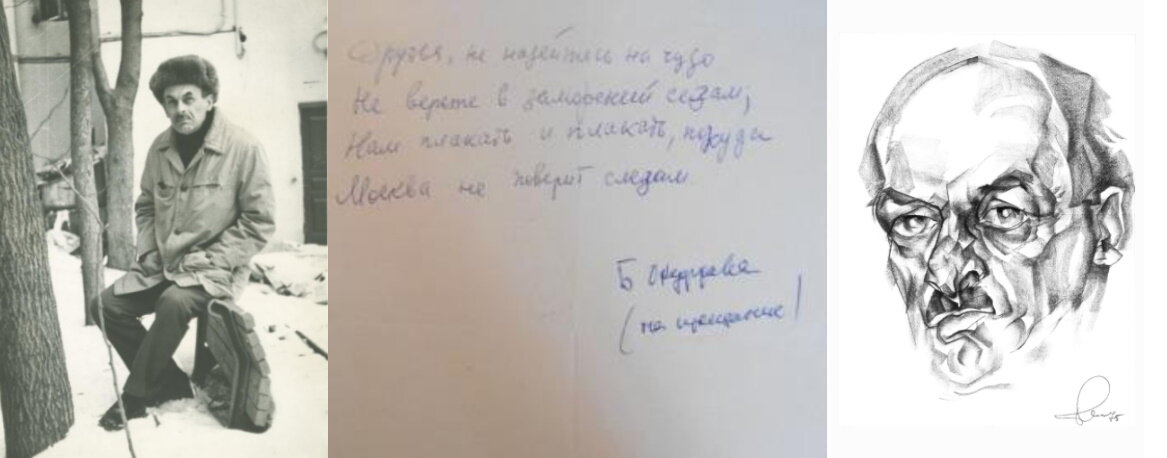 Друзья, не надейтесь на чудо
Не верьте в заморский сезам;
Нам плакать и плакать, покуда
Москва не поверит слезам.
Б Окуджава
(на прощание)